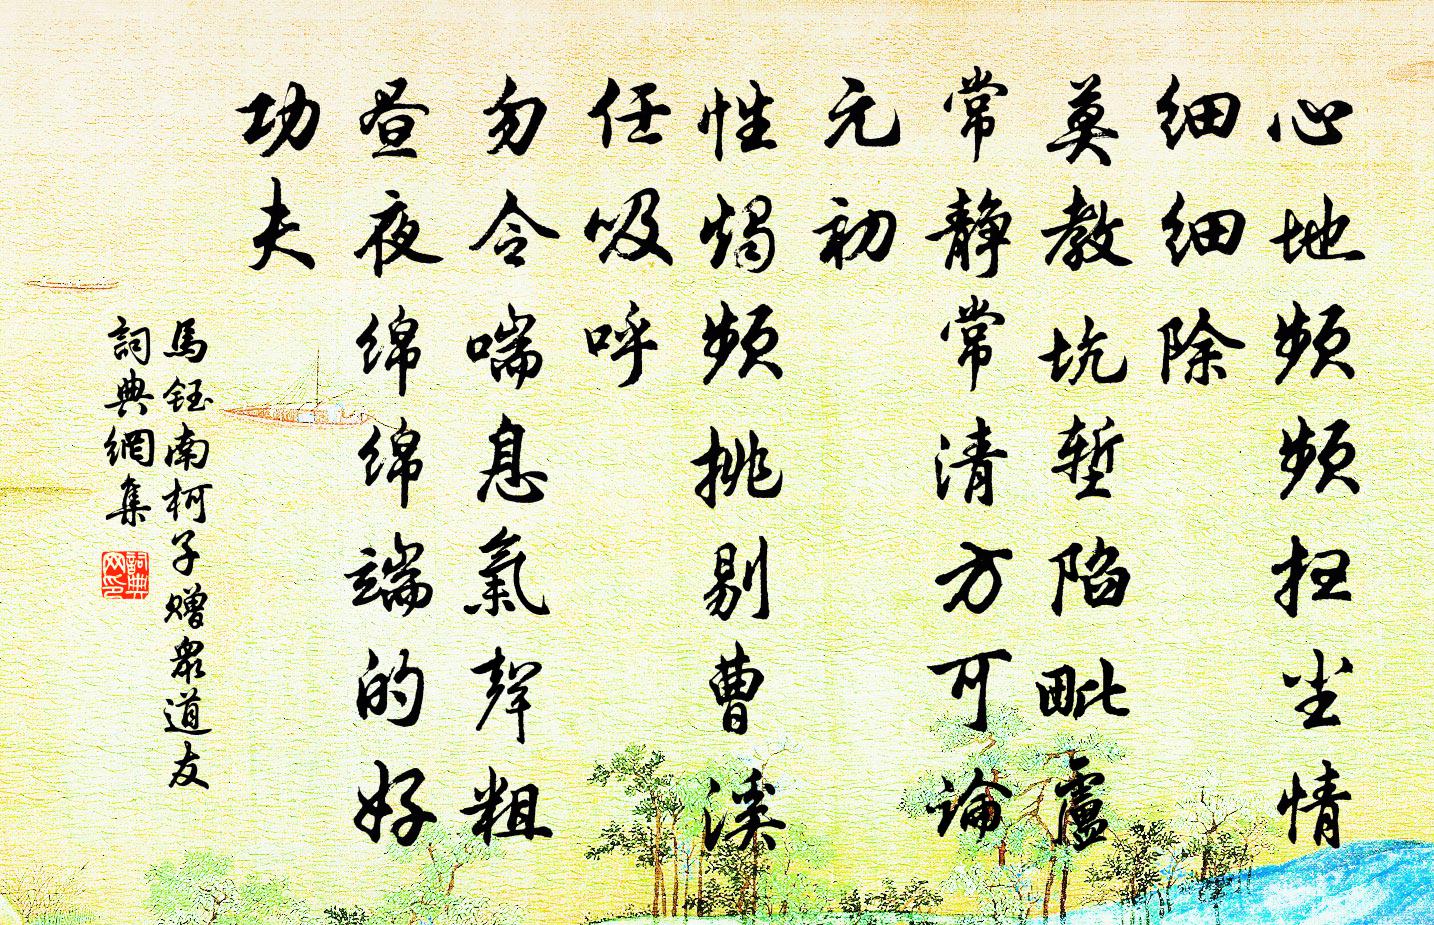 心地频频扫尘情
细细除
莫教坑堑陷毗盧
常静常清方可论
元初
性烛频挑剔曹溪
任吸呼
勿令喘息氣声粗
昼夜绵绵端的好
功夫
馬鈺南柯子赠眾道友
詞典網集
詞典网印